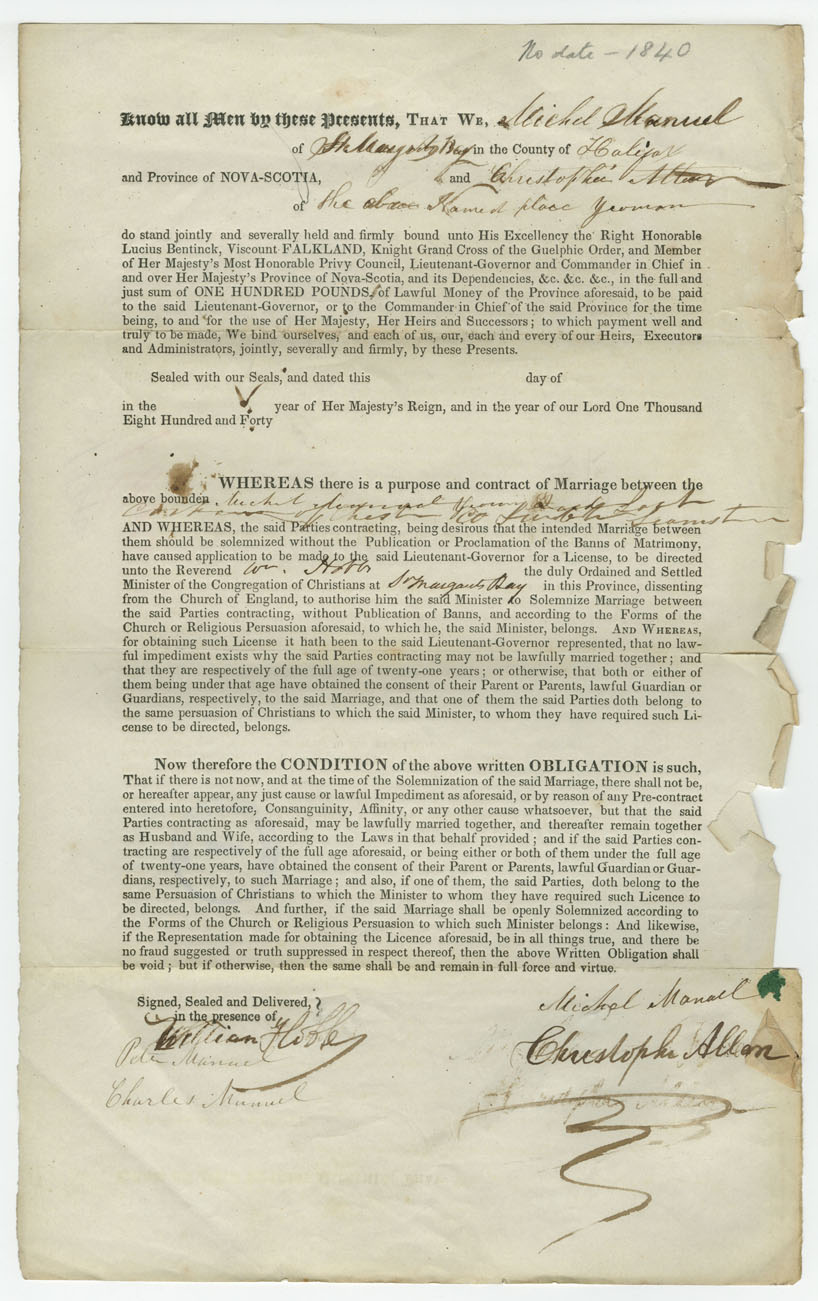 No date - 1840
Know all Men by these Presents, THAT WE, Michel Manuel
of St Margrets Bay in the County of Halifax
and Province of NOVA-SCOTIA, and Christopher Allen
of the above Named place Yeoman
do stand jointly and severally held and firmly bound unto His Excellency the Right Honorable
Lucius Bentinck, Viscount FALKLAND, Knight Grand Cross of the Guelphic Order, and Member
of Her Majesty's Most Honorable Privy Council, Lieutenant-Governor and Commander in Chief in
and over Her Majesty's Province of Nova-Scotia, and its Dependencies, &c. &c. &c., in the full and
just sum of ONE HUNDRED POUNDS, of Lawful Money of the Province aforesaid, to be paid
to the said Lieutenant-Governor, or to the Commander in Chief of the said Province for the time
being, to and for the use of Her Majesty, Her Heirs and Successors; to which payment well and
truly to be made, We bind ourselves, and each of us, our, each and every of our Heirs, Executors
and Administrators, jointly, severally and firmly, by these Presents.
Sealed with our Seals, and dated this day of
in the year of Her Majesty's Reign, and in the year of our Lord One Thousand
Eight Hundred and Forty
WHEREAS there is a purpose and contract of Marriage between the
above bounden Michel Manuel
AND WHEREAS, the said Parties contracting, being desirous that the intended Marriage between
them should be solemnized without the Publication or Proclamation of the Banns of Matrimony,
have caused application to be made to the said Lieutenant-Governor for a License, to be directed
unto the Reverend Wm. Hobbs the duly Ordained and Settled
Minister of the Congregation of Christians at St Margarets Bay in this Province, dissenting
from the Church of England, to authorise him the said Minister to Solemnize Marriage between
the said Parties contracting, without Publication of Banns, and according to the Forms of the
Church or Religious Persuasion aforesaid, to which he, the said Minister, belongs. AND WHEREAS,
for obtaining such License it hath been to the said Lieutenant-Governor represented, that no law-
ful impediment exists why the said Parties contracting may not be lawfully married together; and
that they are respectively of the full age of twenty-one years; or otherwise, that both or either of
them being under that age have obtained the consent of their Parent or Parents, lawful Guardian or
Guardians, respectively, to the said Marriage, and that one of them the said Parties doth belong to
the same persuasion of Christians to which the said Minister, to whom they have required such Li-
cense to be directed, belongs.
Now therefore the CONDITION of the above written OBLIGATION is such,
That if there is not now, and at the time of the Solemnization of the said Marriage, there shall not be,
or hereafter appear, any just cause or lawful Impediment as aforesaid, or by reason of any Pre-contract
entered into heretofore, Consanguinity, Affinity, or any other cause whatsoever, but that the said
Parties contracting as aforesaid, may be lawfully married together, and thereafter remain together
as Husband and Wife, according to the Laws in that behalf provided; and if the said Parties con-
tracting are respectively of the full age aforesaid, or being either or both of them under the full age
of twenty-one years, have obtained the consent of their Parent or Parents, lawful Guardian or Guar-
dians, respectively, to such Marriage; and also, if one of them, the said Parties, doth belong to the
same Persuasion of Christians to which the Minister to whom they have required such Licence to
be directed, belongs. And further, if the said Marriage shall be openly Solemnized according to
the Forms of the Church or Religious Persuasion to which such Minister belongs: And likewise,
if the Representation made for obtaining the Licence aforesaid, be in all things true, and there be
no fraud suggested or truth suppressed in respect thereof, then the above Written Obligation shall
be void; but if otherwise, then the same shall be and remain in full force and virtue.
Signed, Sealed and Delivered,
in the presence of
Michel Manuel
William Hobbs
Christophr Allen
Peter Manuel
Charles Manuel